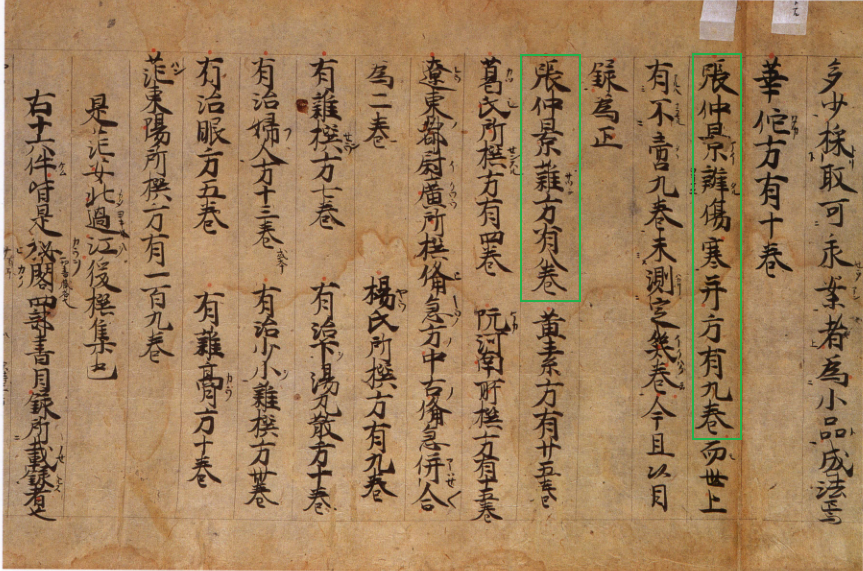 多少採取可承業者為小品成法焉
華佗方有十卷
張仲景雜傷寒并方有九卷而世上
有不啻九卷未測定幾卷今且以目
録為正
張仲景雜方有八卷 黄素方有廿五卷
葛氏所撰方有四卷 阮河南所撰方有十五卷
遼東都尉廣所撰備急方中古備急併合
為二卷 楊氏所撰方有九卷
有雜撰方七卷 有治下湯丸散方十卷
有治婦人方十三卷 有治少小雜撰方卅卷
有治眼方五卷 有雜膏方十卷
范東陽所撰方有一百九卷
是范安北過江後撰集也
右十六件皆是秘閣四部書目録所載録者也